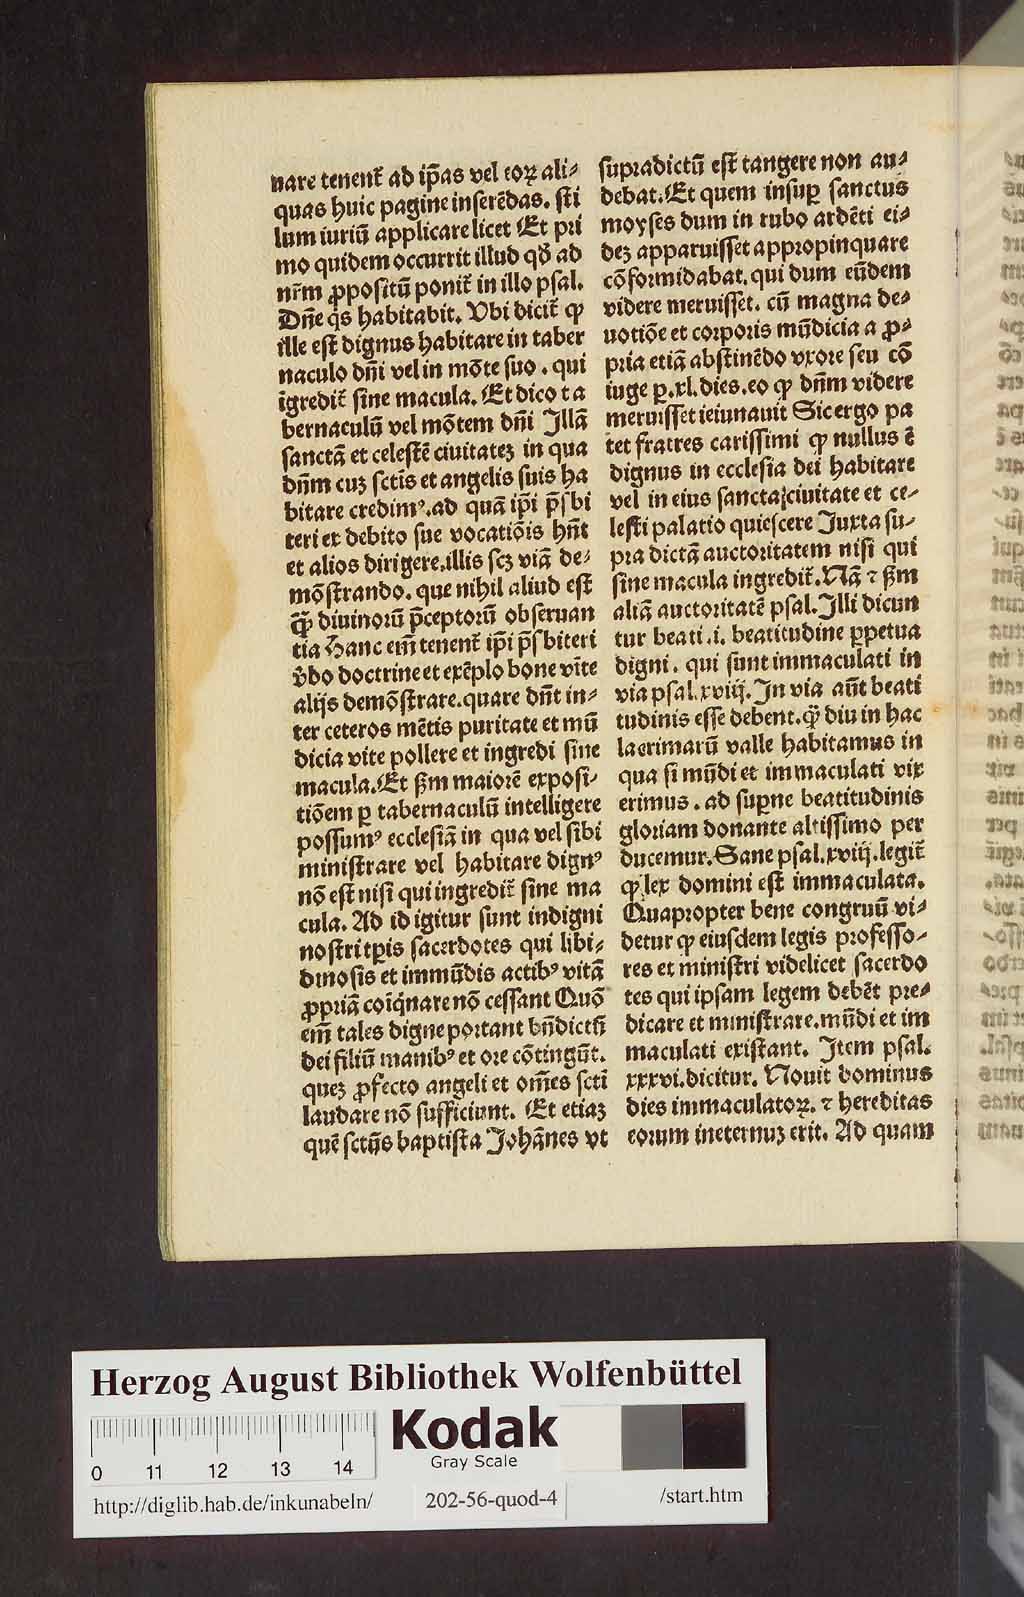 nare tenent᷑ ad ip̄as vel eoꝝ ali⸗
quas huic pagine inserēdas. sti
lum iuriū applicare licet Et pri
mo quidem occurrit illud qð ad
nr̄m ꝓpositū ponit᷑ in illo psal.
Dn̄e q̇s habitabit. Vbi dicit᷑ ꝙ
ille est dignus habitare in taber
naculo dn̄i vel in mōte suo. qui
īgredit᷑ sine macula. Et dico ta
bernaculū vel mōtem dn̄i Illā
sanctā et celestē ciuitateꝫ in qua
dn̄m cuꝫ sctīs et angelis suis ha
bitare credimꝰ. ad quā ip̄i p̄sbi
teri ex debito sue vocatiōis hn̄t
et alios dirigere. illis scꝫ viā de⸗
mōstrando. que nihil aliud est
ꝙ̄ diuinorū p̄ceptorū obseruan
tia Hanc em̄ tenent᷑ ip̄i p̄sbiteri
v̄bo doctrine et exēplo bone vite
alijs demōstrare. quare dn̄t in⸗
ter ceteros mētis puritate et mū
dicia vite pollere et ingredi sine
macula. Et ẜm maiorē exposi⸗
tiōem ꝑ tabernaculū intelligere
possumꝰ ecclesiā in qua vel sibi
ministrare vel habitare dignꝰ
nō est nisi qui ingredit᷑ sine ma
cula. Ad id igitur sunt indigni
nostri tꝑis sacerdotes qui libi⸗
dinosis et immūdis actibꝰ vitā
ꝓpriā coiq̇nare nō cessant Quō
em̄ tales digne portant bn̄dictū
dei filiū manibꝰ et ore cōtingūt.
queꝫ ꝓfecto angeli et om̄es sctī
laudare nō sufficiunt. Et etiaꝫ
quē sctūs baptista Johānes vt
supradictū est tangere non au⸗
debat. Et quem insuꝑ sanctus
moyses dum in rubo ardēti ei⸗
deꝫ apparuisset appropinquare
cōformidabat. qui dum eūdem
videre meruisset. cū magna de⸗
uotiōe et corporis mūdicia a ꝓ⸗
pria etiā abstinēdo vxore seu cō
iuge ꝑ. xl. dies. eo ꝙ dn̄m videre
meruisset ieiunauit Sic ergo pa
tet fratres carissimi ꝙ nullus ē
dignus in ecclesia dei habitare
vel in eius sancta ciuitate et ce⸗
lesti palatio quiescere Juxta su⸗
pra dictā auctoritatem nisi qui
sine macula ingredit᷑. Nā ⁊ ẜm
aliā auctoritatē psal. Illi dicun
tur beati. i. beatitudine ꝑpetua
digni. qui sunt immaculati in
via psal. xviij. In via aūt beati
tudinis esse debent. ꝙ̄ diu in hac
lacrimarū valle habitamus in
qua si mūdi et immaculati vix
erimus. ad suꝑne beatitudinis
gloriam donante altissimo per
ducemur. Sane psal. xviij. legit᷑
ꝙ lex domini est immaculata.
Quapropter bene congruū vi⸗
detur ꝙ eiusdem legis professo⸗
res et ministri videlicet sacerdo
tes qui ipsam legem debēt pre⸗
dicare et ministrare. mūdi et im
maculati existant. Item psal.
xxxvi. dicitur. Nouit dominus
dies immaculatoꝝ. ⁊ hereditas
eorum ineternuꝫ erit. Ad quam
Herzog August Bibliothek Wolfenbüttel
Kodak
Gray Scale
0 11 12 13 14
http://diglib.hab.de/inkunabeln/
202-56-quod-4
/start.htm